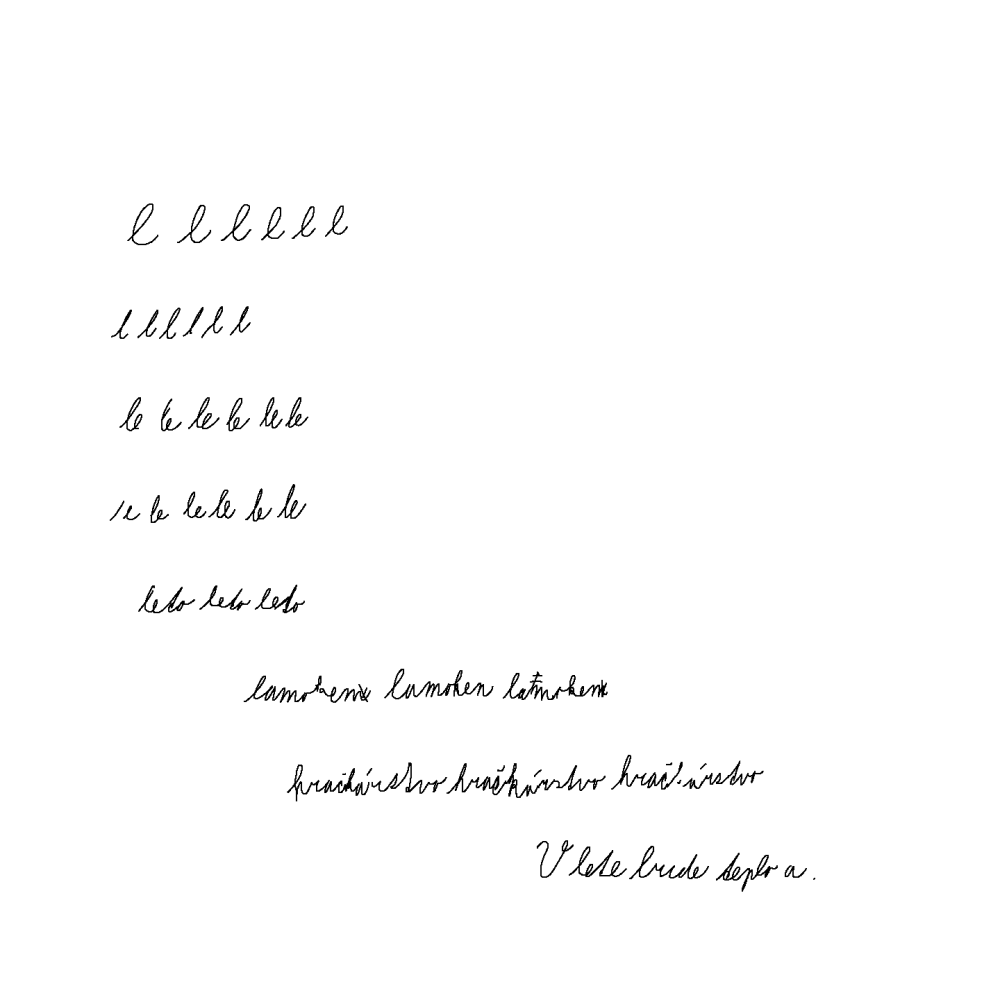 l l l l l l
l l l l l l
le le le le le le
le le le le le le
leto leto leto
lamoken lamoken lamoken
hračkárstvo hračkárstvo hračkárstvo
V lete bude teplo a.